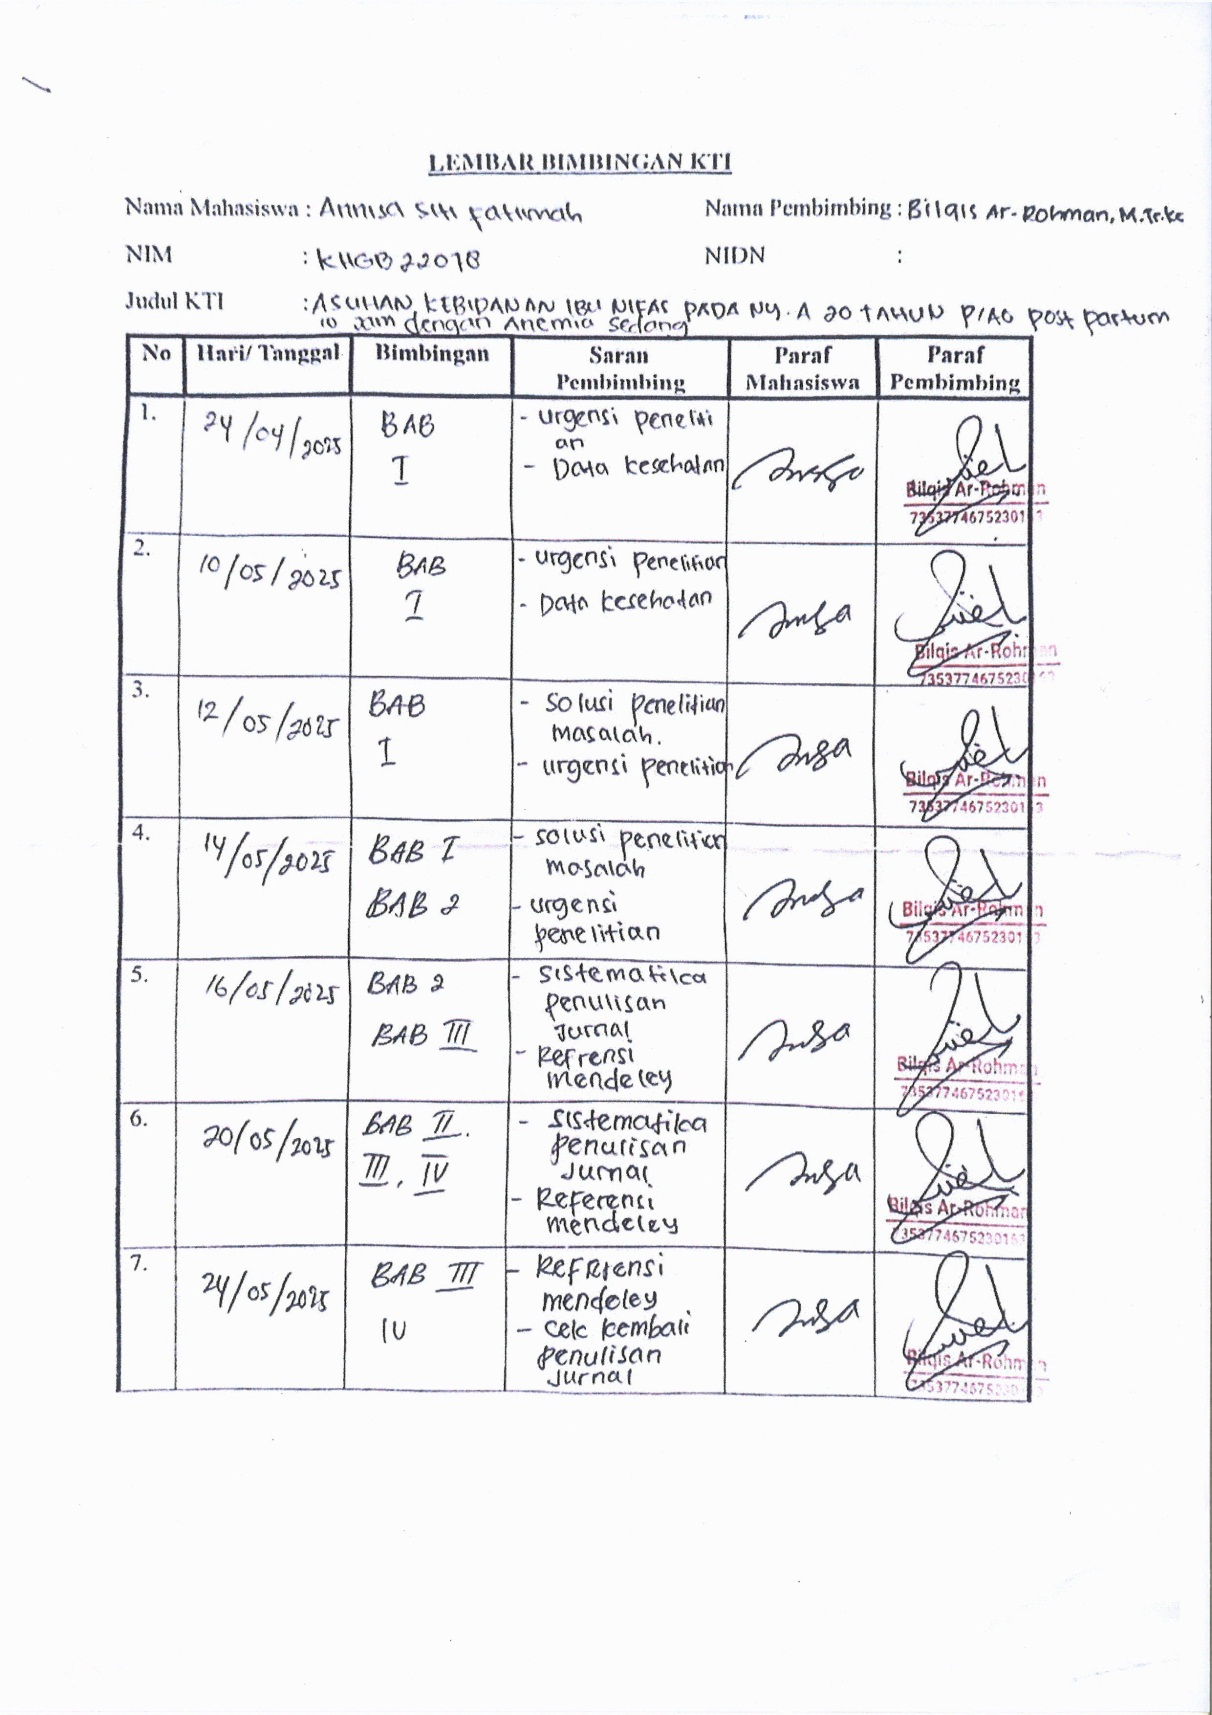 LEMBAR BIMBINGAN KTI
Nama Mahasiswa : Annisa Siti Fatimah
Nama Pembimbing : Bilqis Ar-Rohman, M.Tr.Kes
NIM : KHGB22078
NIDN :
Judul KTI : ASUHAN KEBIDANAN IBU NIFAS PADA NY. A 20 TAHUN P1A0 post partum
10 jam dengan Anemia sedang
No Hari/ Tanggal Bimbingan Saran Pembimbing Paraf Mahasiswa Paraf Pembimbing
1. 24/04/2025 BAB I
- urgensi peneliti
an
- Data kesehatan
Bilqis Ar-Rohman
7353774675230163
2. 10/05/2025 BAB I
- urgensi penelitian
- Data kesehatan
Bilqis Ar-Rohman
7353774675230163
3. 12/05/2025 BAB I
- solusi penelitian
masalah.
- urgensi penelitian
Bilqis Ar-Rohman
7353774675230163
4. 14/05/2025 BAB I
BAB 2
- solusi penelitian
masalah
- urgensi
penelitian
Bilqis Ar-Rohman
7353774675230163
5. 16/05/2025 BAB 2
BAB III
- sistematika
penulisan
Jurnal
- Refrensi
mendeley
Bilqis Ar-Rohman
7353774675230163
6. 20/05/2025 BAB II.
III, IV
- sistematika
penulisan
Jurnal
- Referensi
mendeley
Bilqis Ar-Rohman
7353774675230163
7. 24/05/2025 BAB III
IV
- Refrensi
mendeley
- Cek kembali
penulisan
Jurnal
Bilqis Ar-Rohman
7353774675230163